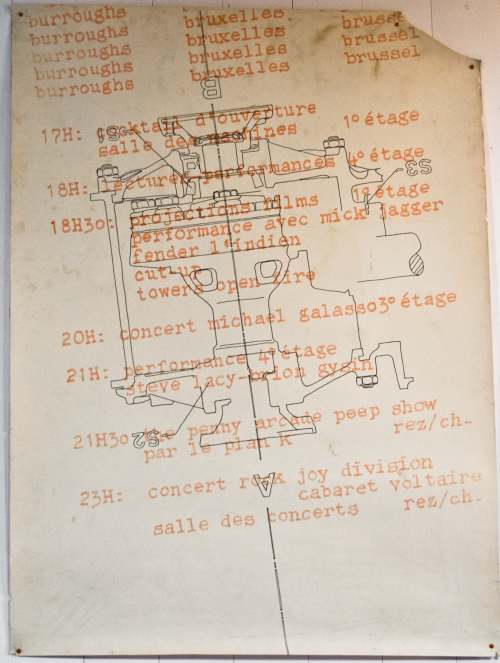 burroughs bruxelles. brusse
burroughs bruxelles brussel
burroughs bruxelles brussel
burroughs bruxelles brussel
burroughs bruxelles
B
17H: cocktail d'ouverture 1º étage
salle des machines
S1
18H: lectures performances 4º étage
S3
18H30: projections films 1º étage
performance avec mick jagger
fender l'indien
cut-up
towers open fire
20H: concert michael galasso 3º étage
21H: performance 4º étage
steve lacy-brion gysin
21H30 the penny arcade peep show
par le plan K rez/ch.
S2
A
23H: concert rock joy division
cabaret voltaire
salle des concerts rez/ch.